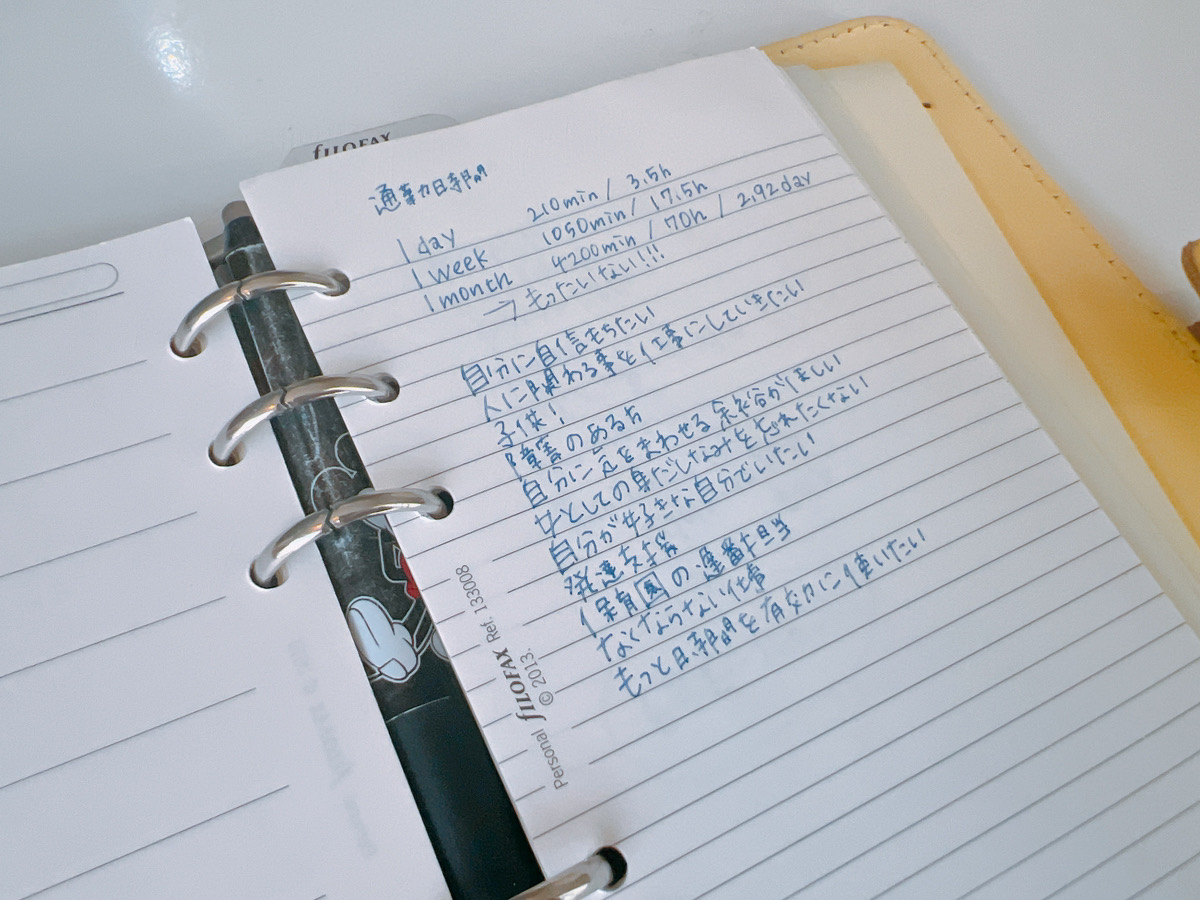 filofax
通勤時間
1 day 210min / 3.5h
1 week 1050min / 17.5h
1 month 4200min / 70h / 2.92day
→ もったいない!!!
自分に自信もちたい
人に関わる事を仕事にしていきたい
子供!
障害のある方
自分に気をまわせる余裕がほしい
女としての身だしなみを忘れたくない
自分が好きな自分でいたい
発達支援
保育園の遅番担当
なくならない仕事
もっと時間を有効に使いたい
Personal filofax Ref. 133008
© 2013.